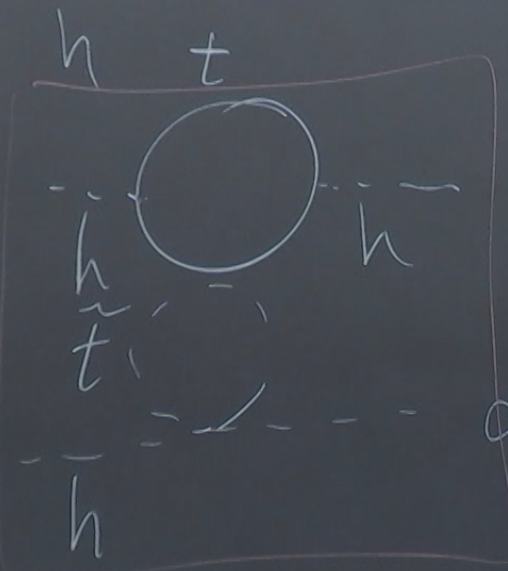 h t
h h
t̃
h